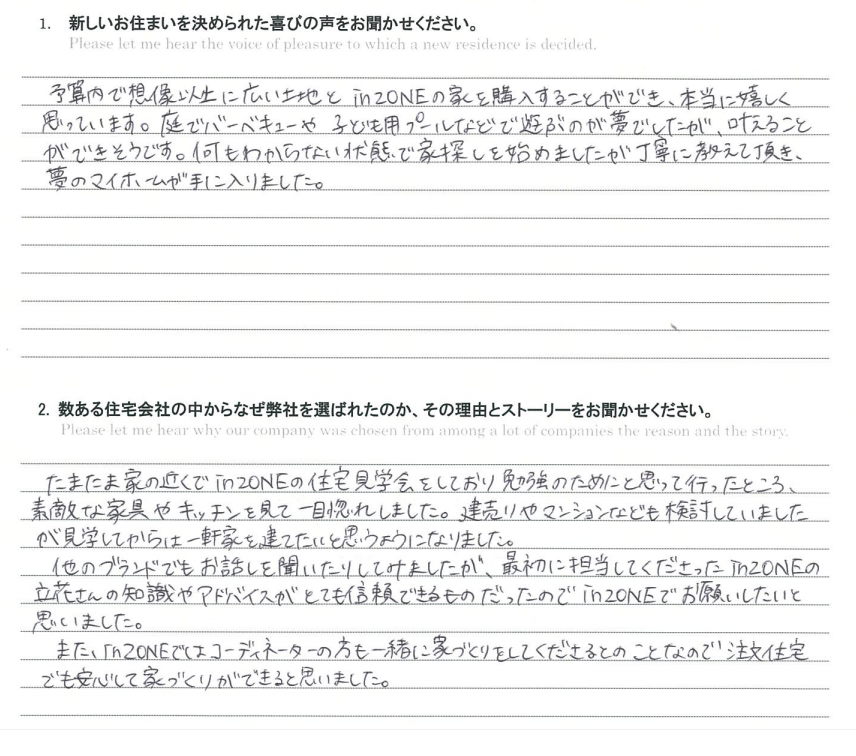 1. 新しいお住まいを決められた喜びの声をお聞かせください。
Please let me hear the voice of pleasure to which a new residence is decided.
予算内で想像以上に広い土地と inZONEの家を購入することができ、本当に嬉しく
思っています。庭でバーベキューや 子ども用プールなどで遊ぶのが夢でしたが、叶えること
ができそうです。何もわからない状態で家探しを始めましたが丁寧に教えて頂き、
夢のマイホームが手に入りました。
2. 数ある住宅会社の中からなぜ弊社を選ばれたのか、その理由とストーリーをお聞かせください。
Please let me hear why our company was chosen from among a lot of companies the reason and the story.
たまたま家の近くで inZONEの住宅見学会をしており 勉強のためにと思って行ったところ、
素敵な家具やキッチンを見て一目惚れしました。建売りやマンションなども検討していました
が見学してからは一軒家を建てたいと思うようになりました。
他のブランドでもお話しを聞いたりしてみましたが、最初に担当してくださった inZONEの
立花さんの知識やアドバイスがとても信頼できるものだったので inZONEでお願いしたいと
思いました。
また、inZONEではコーディネーターの方も一緒に家づくりをしてくださるとのことなので 注文住宅
でも安心して家づくりができると思いました。